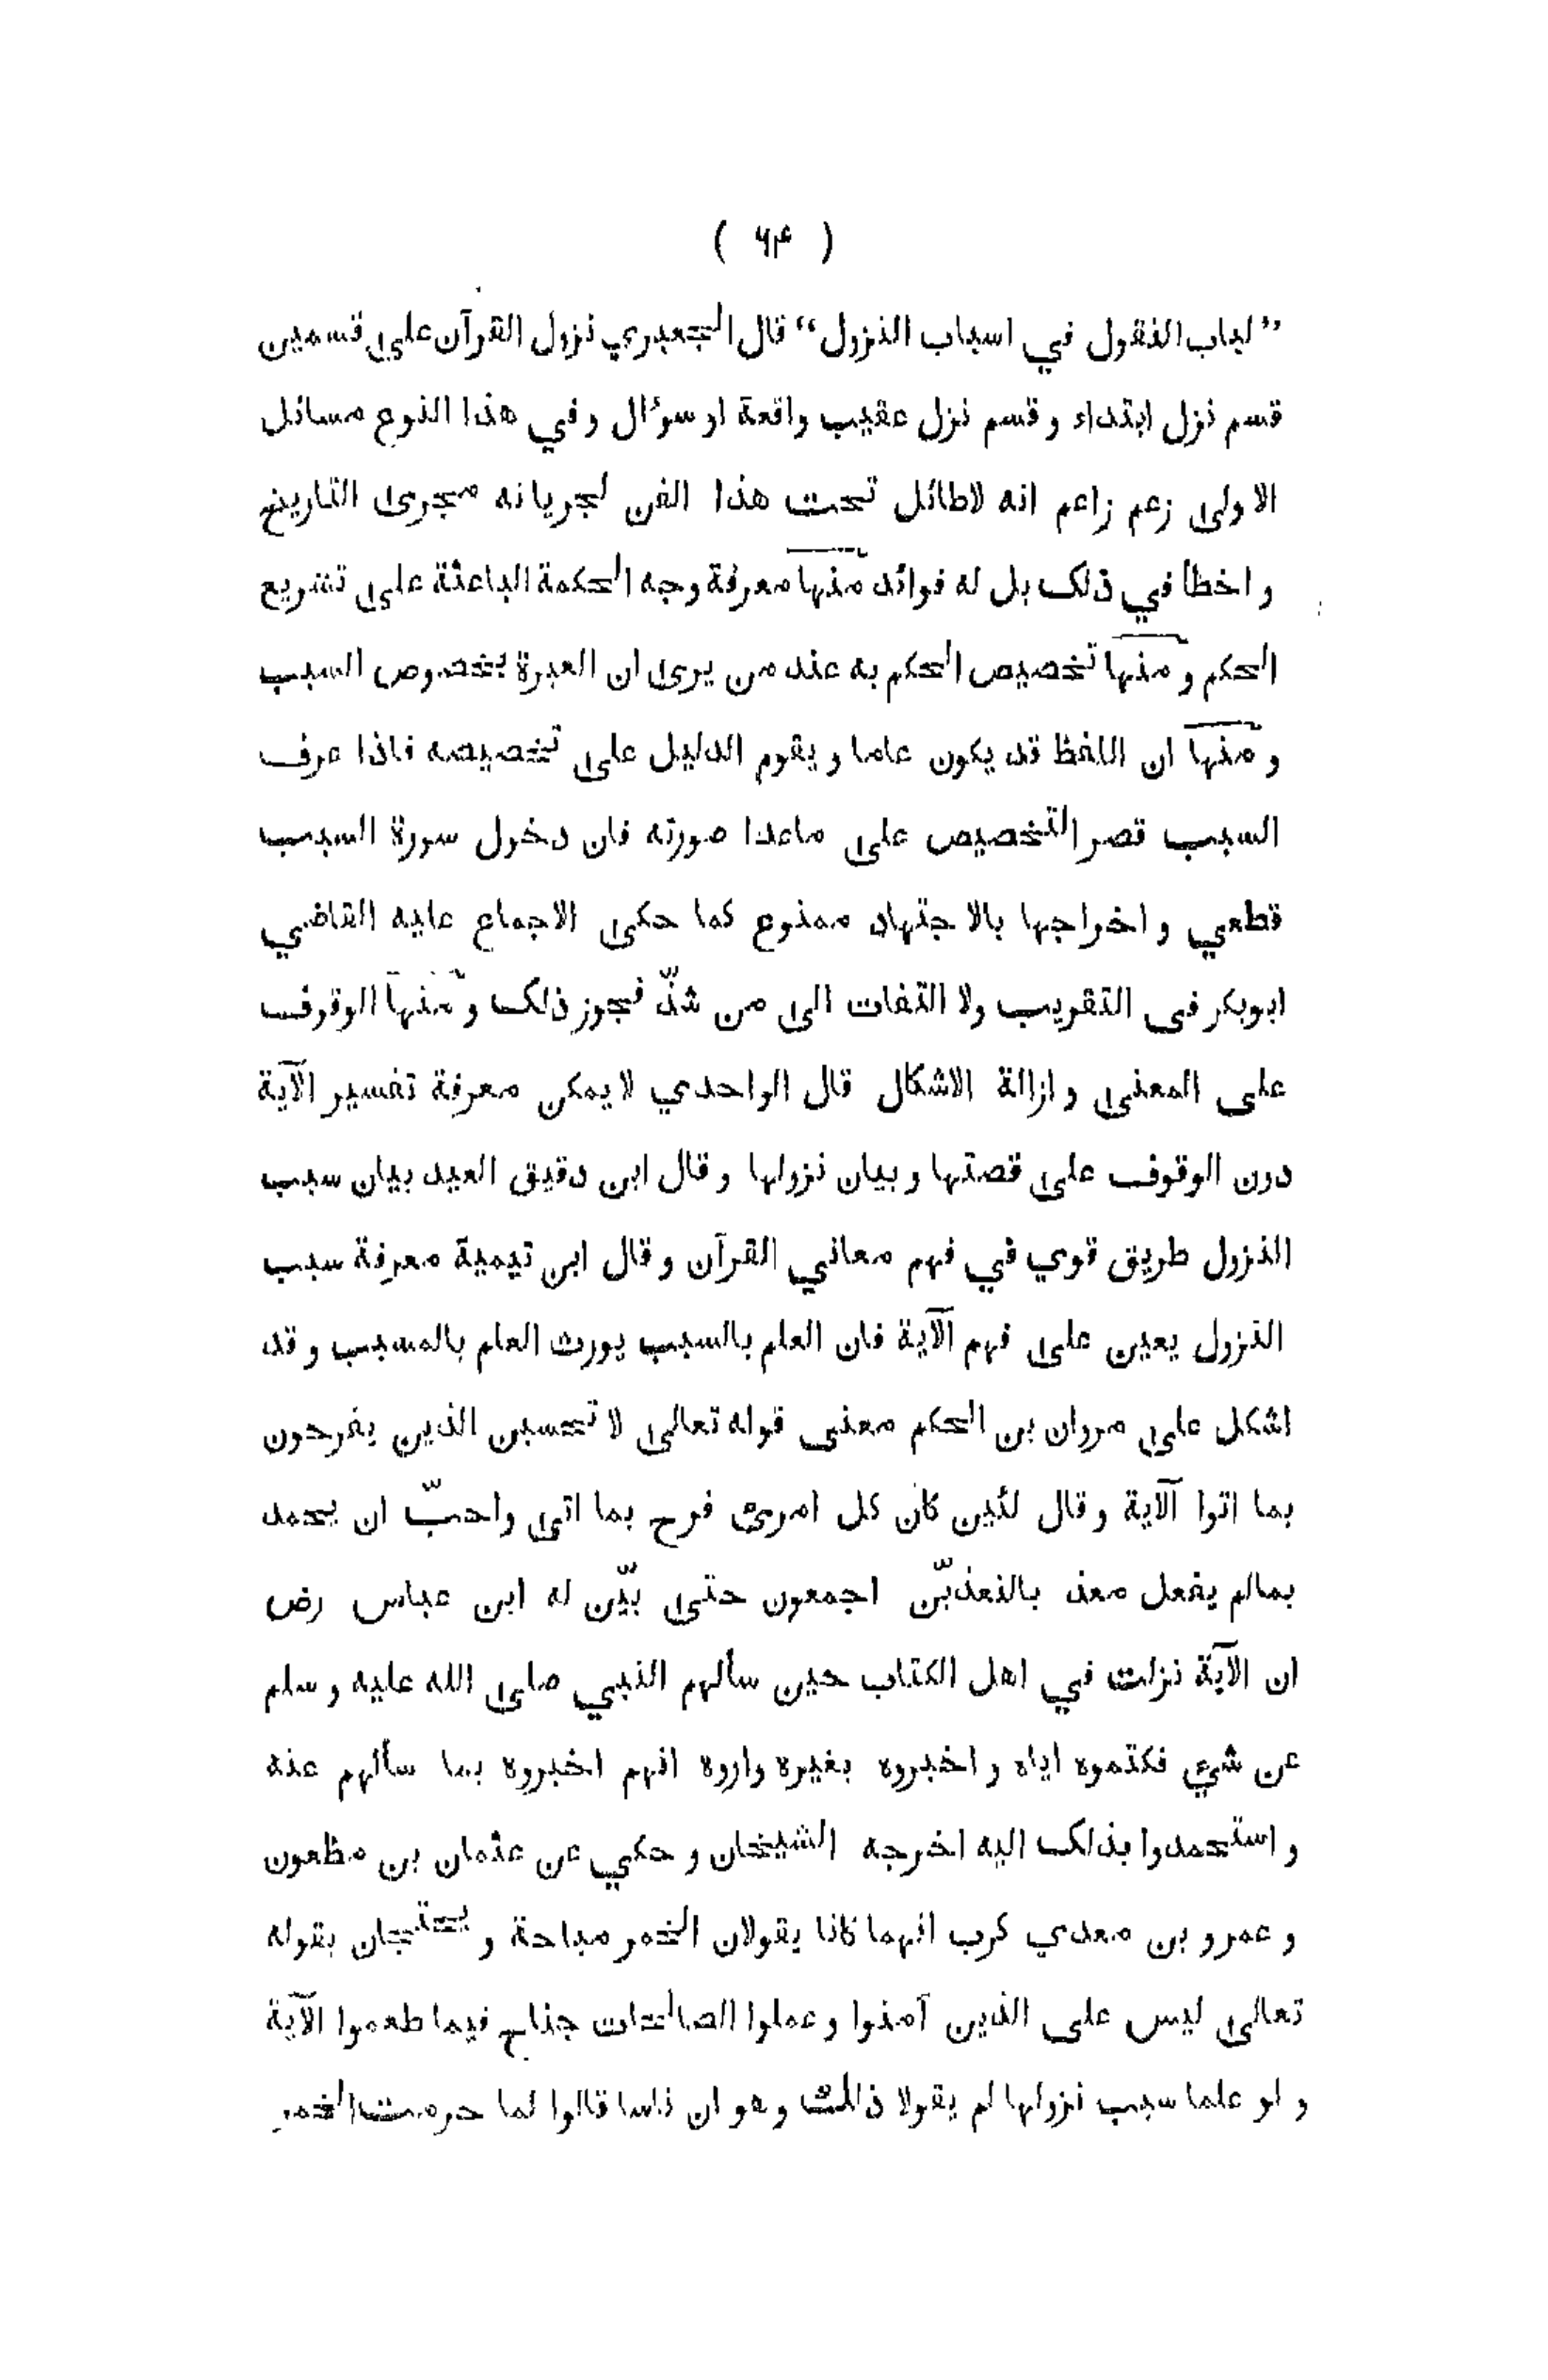 ( ۶۴ )
”لباب النقول في اسباب النزول“ قال الجعبري نزول القرآن على قسمين
قسم نزل ابتداء و قسم نزل عقيب واقعة او سؤال و في هذا النوع مسائل
الاولى زعم زاعم انه لاطائل تحت هذا الفن لجريانه مجرى التاريخ
و اخطأ في ذلک بل له فوائد منها معرفة وجه الحكمة الباعثة على تشريع
الحكم و منها تخصيص الحكم به عند من يرى ان العبرة بخصوص السبب
و منها ان اللفظ قد يكون عاما و يقوم الدليل على تخصيصه فاذا عرف
السبب قصر التخصيص على ماعدا صورته فان دخول سورة السبب
قطعي و اخراجها بالاجتهاد ممنوع كما حكى الاجماع عليه القاضي
ابوبكر فى التقريب ولا التفات الى من شذّ فجوز ذلک و منها الوقوف
على المعنى و ازالة الاشكال قال الواحدي لايمكن معرفة تفسير الآية
درن الوقوف على قصتها و بيان نزولها و قال ابن دقيق العيد بيان سبب
النزول طريق قوي في فهم معاني القرآن و قال ابن تيمية معرفة سبب
النزول يعين على فهم الآية فان العلم بالسبب يورث العلم بالمسبب و قد
اشكل على مروان بن الحكم معنى قوله تعالى لا تحسبن الذين يفرحون
بما اتوا الآية و قال لئين كان كل امرئ فرح بما اتى واحبّ ان يحمد
بمالم يفعل معذ بالنعذبّن اجمعون حتى بيّن له ابن عباس رض
ان الآية نزلت في اهل الكتاب حين سألهم النبي صلى الله عليه و سلم
عن شيء فكتموه اياه و اخبروه بغيره واروه انهم اخبروه بما سألهم عنه
و استحمدوا بذلک اليه اخرجه الشيخان و حكي عن عثمان بن مظعون
و عمرو بن معدي كرب انهما كانا يقولان الخمر مباحة و يحتجان بقوله
تعالى ليس على الذين آمنوا و عملوا الصالحات جناح فيما طعموا الآية
و لو علما سبب نزولها لم يقولا ذلك و هو ان ناسا قالوا لما حرمت الخمر